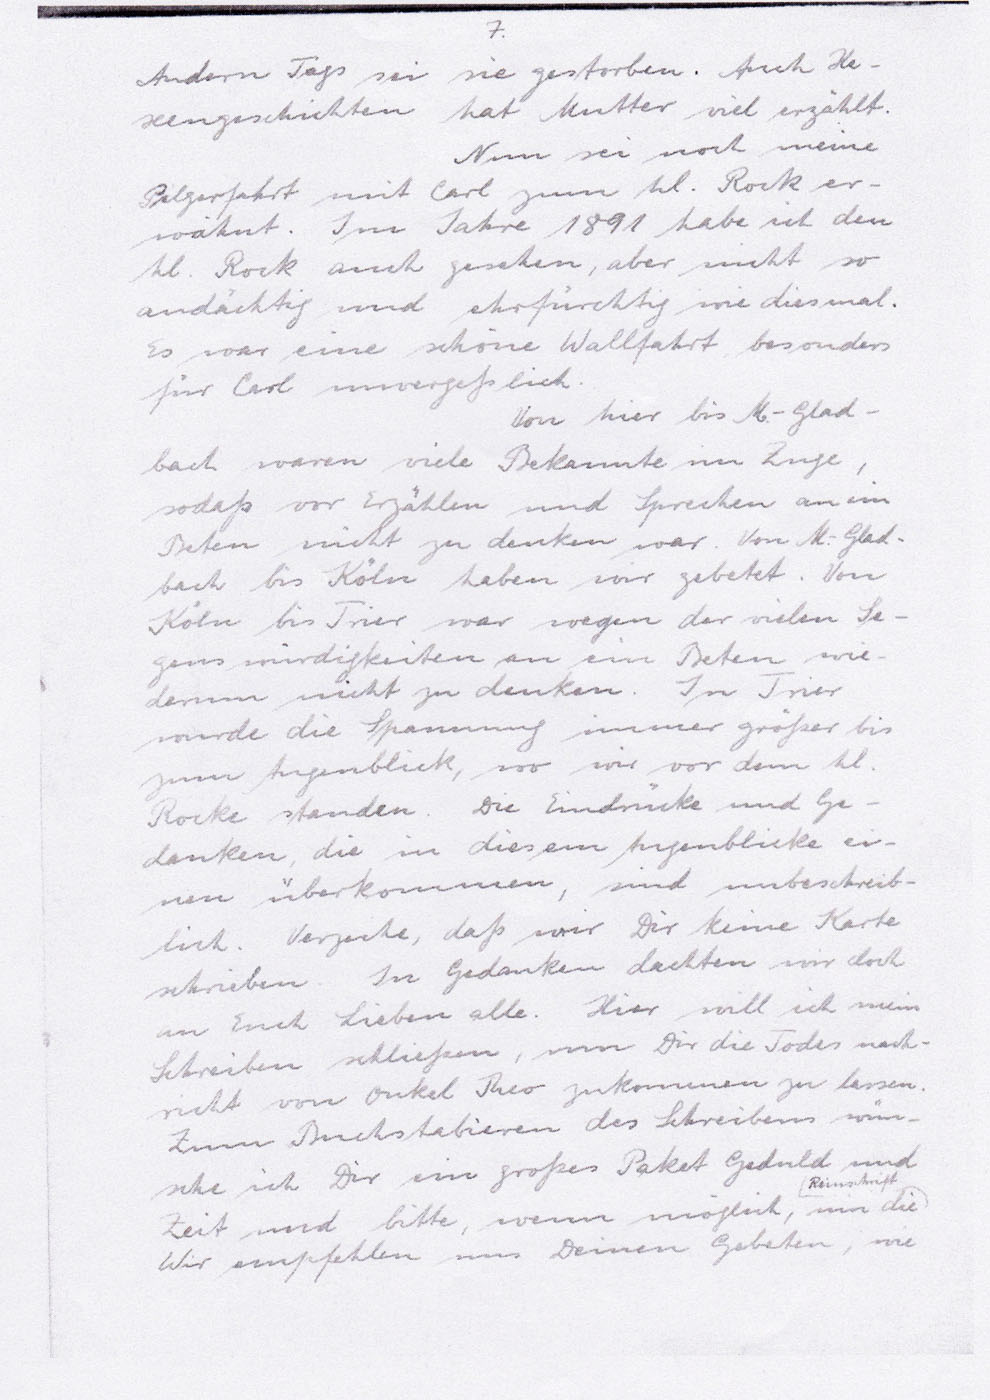 7.
Andern Tags sei sie gestorben. Auch He-
xengeschichten hat Mutter viel erzählt.
Nun sei noch meine
Pilgerfahrt mit Carl zum hl. Rock er-
wähnt. Im Jahre 1891 habe ich den
hl. Rock auch gesehen, aber nicht so
andächtig und ehrfürchtig wie diesmal.
Es war eine schöne Wallfahrt besonders
für Carl unvergeßlich.
Von hier bis M.-Glad-
bach waren viele Bekannte im Zuge,
sodaß vor Erzählen und Sprechen an ein
Beten nicht zu denken war. Von M.-Glad-
bach bis Köln haben wir gebetet. Von
Köln bis Trier war wegen der vielen Se-
genswürdigkeiten an ein Beten wie-
derum nicht zu denken. In Trier
wurde die Spannung immer größer bis
zum Augenblick, wo wir vor dem hl.
Rocke standen. Die Eindrücke und Ge-
danken, die in diesem Augenblicke ei-
nen überkommen, sind unbeschreib-
lich. Verzeihe, daß wir Dir keine Karte
schrieben. In Gedanken dachten wir doch
an Euch Lieben alle. Hier will ich mein
Schreiben schließen, um Dir die Todes nach-
richt von Onkel Theo zukommen zu lassen.
Zum Buchstabieren des Schreibens wün-
sche ich Dir ein großes Paket Geduld und
Reinschrift
Zeit und bitte, wenn möglich, um die
Wir empfehlen uns Deinen Gebeten, wie